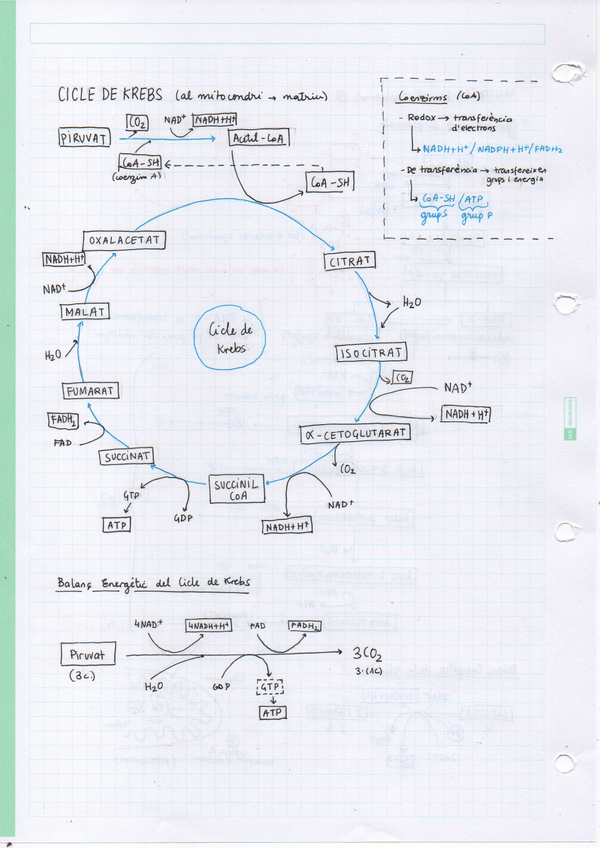 CICLE DE KREBS (al mitocondri → matriu)
PIRUVAT
CO2
NAD+
NADH+H+
Acetil-CoA
CoA-SH
(coenzim A)
CoA-SH
Coenzims (CoA)
- Redox → transferència
d'electrons
NADH+H+/NADPH+H+/FADH2
- De transferència → transfereixen
grups i energia
CoA-SH/ATP
grup S grup P
OXALACETAT
CITRAT
H2O
ISOCITRAT
CO2
NAD+
NADH+H+
α-CETOGLUTARAT
CO2
NAD+
NADH+H+
SUCCINIL
COA
GDP
GTP
ATP
SUCCINAT
FAD
FADH2
FUMARAT
H2O
MALAT
NAD+
NADH+H+
Cicle de
Krebs
Balanç Energètic del Cicle de Krebs
4NAD+ 4NADH+H+ FAD FADH2
Piruvat 3CO2
(3c) 3·(1c)
H2O GDP GTP
ATP